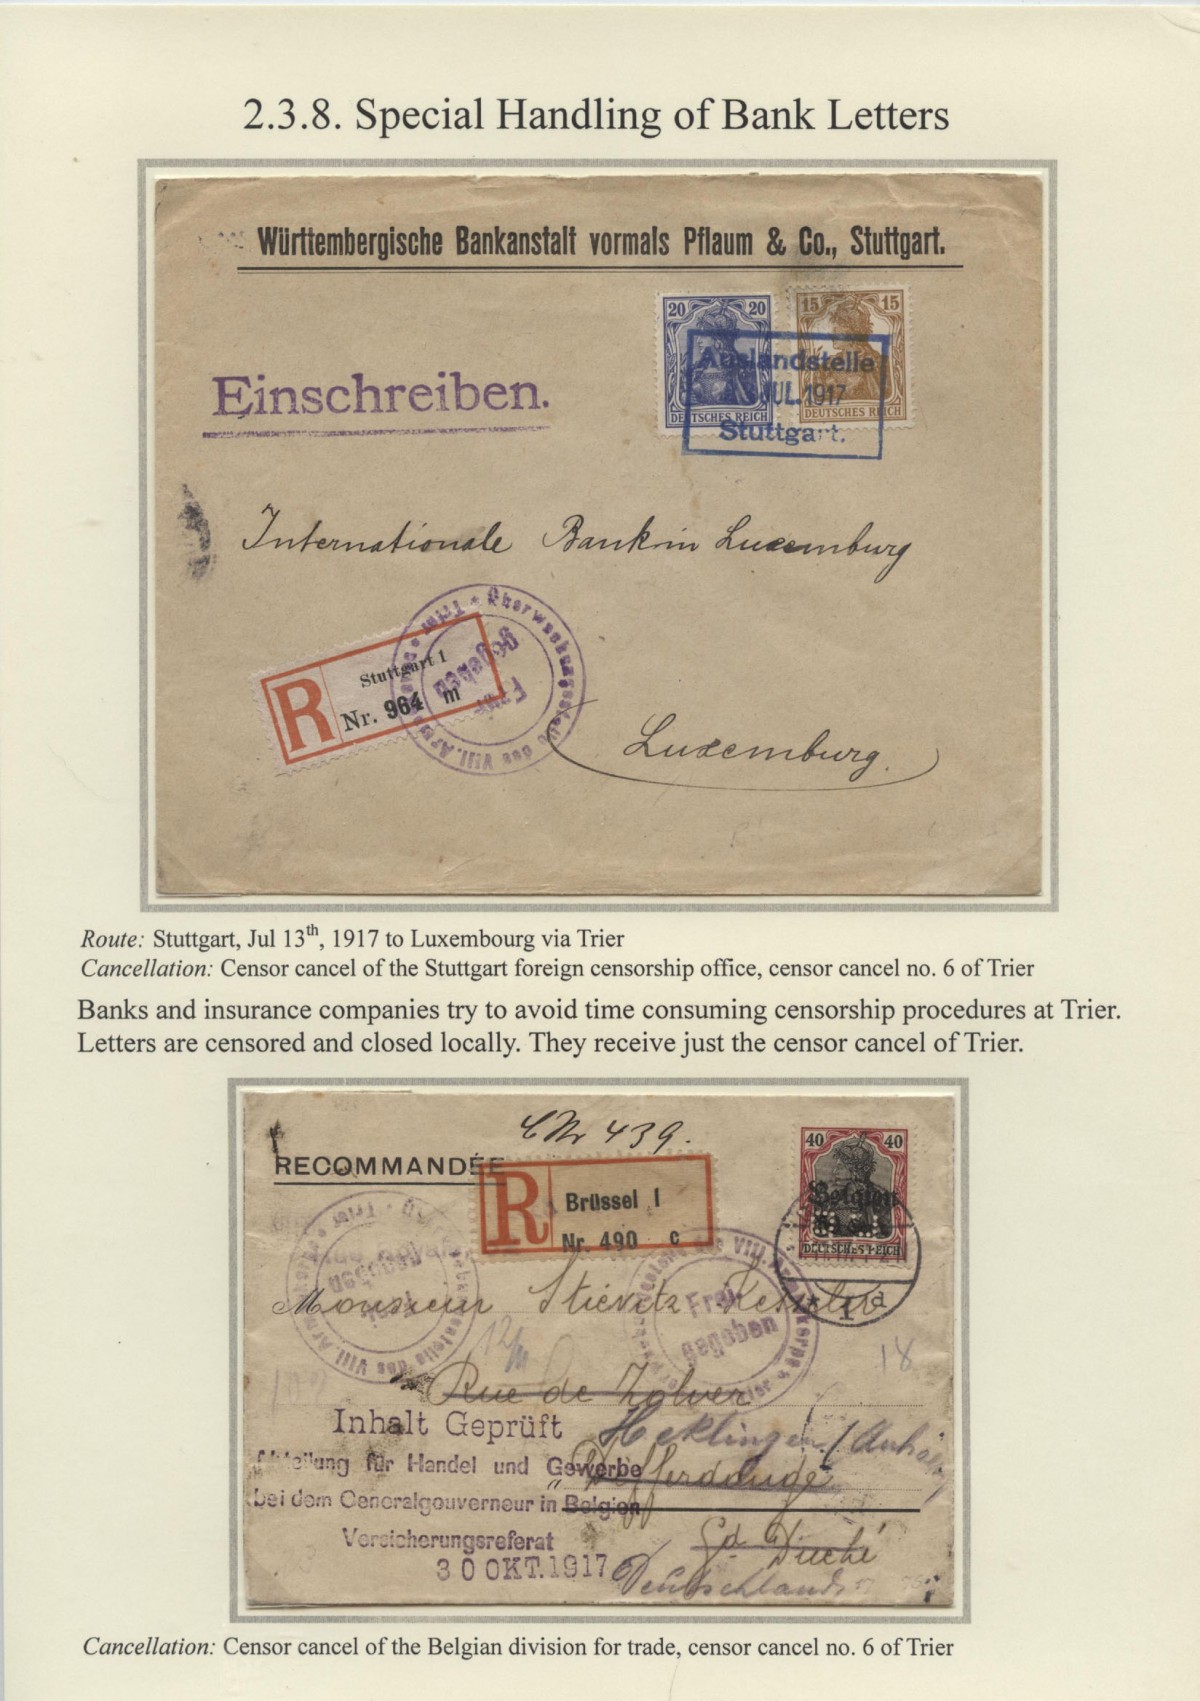 2.3.8. Special Handling of Bank Letters
Württembergische Bankanstalt vormals Pflaum & Co., Stuttgart.
20 20
15 15
DEUTSCHES REICH
DEUTSCHES REICH
Auslandstelle
JUL. 1917
Stuttgart.
Einschreiben.
Internationale Bank in Luxemburg
R
Stuttgart 1
Nr. 964 m
Überwachungsstelle des VIII. Armeekorps * Trier *
Freigegeben
Luxemburg.
Route: Stuttgart, Jul 13th, 1917 to Luxembourg via Trier
Cancellation: Censor cancel of the Stuttgart foreign censorship office, censor cancel no. 6 of Trier
Banks and insurance companies try to avoid time consuming censorship procedures at Trier.
Letters are censored and closed locally. They receive just the censor cancel of Trier.
Nr 439.
RECOMMANDÉE
R
Brüssel 1
Nr. 490 c
40 40
Belgien
DEUTSCHES REICH
* 1 d
des VIII. Armeekorps * Trier
Frei-
gegeben
Monsieur
12/11
18
Rue de Zolver
Inhalt Geprüft
Hecklingen (Anhalt)
Abteilung für Handel und Gewerbe
Differdange
bei dem Generalgouverneur in Belgien
Versicherungsreferat
Gd. Duché
30 OKT. 1917
Deutschland
Cancellation: Censor cancel of the Belgian division for trade, censor cancel no. 6 of Trier